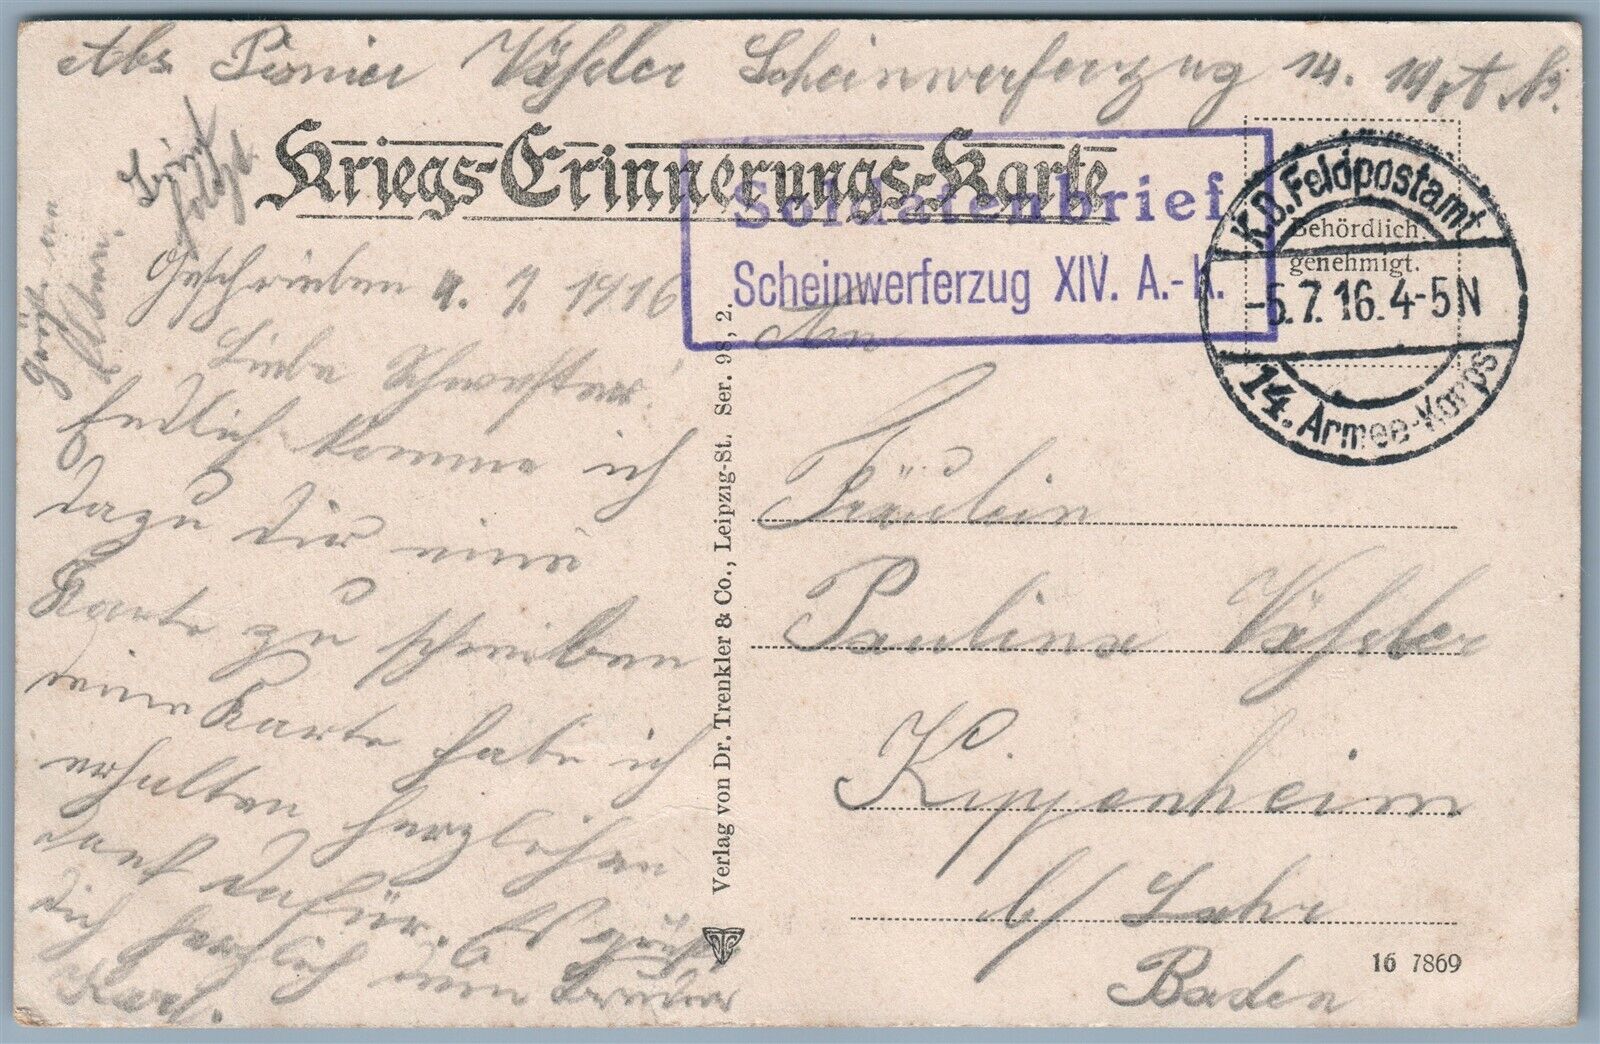 Abs. Pionier Vässler Scheinwerferzug 14. A.K.
Kriegs-Erinnerungs-Karte
Soldatenbrief
Scheinwerferzug XIV. A.-K.
K.D. Feldpostamt
-5.7.16.4-5N
14. Armee-Korps
Behördlich
genehmigt.
Brief folgt.
Geschrieben 4. 7. 1916
Liebe Schwester!
Endlich komme ich
dazu dir eine
Karte zu schreiben
eine Karte habe ich
erhalten herzlichen
Dank dafür. Es grüßt
dich herzlich dein Bruder
Karl.
An
Fräulein
Paulina
Kippenheim
b/ Lahr
Baden
Verlag von Dr. Trenkler & Co., Leipzig-St. Ser. 98, 2.
16 7869